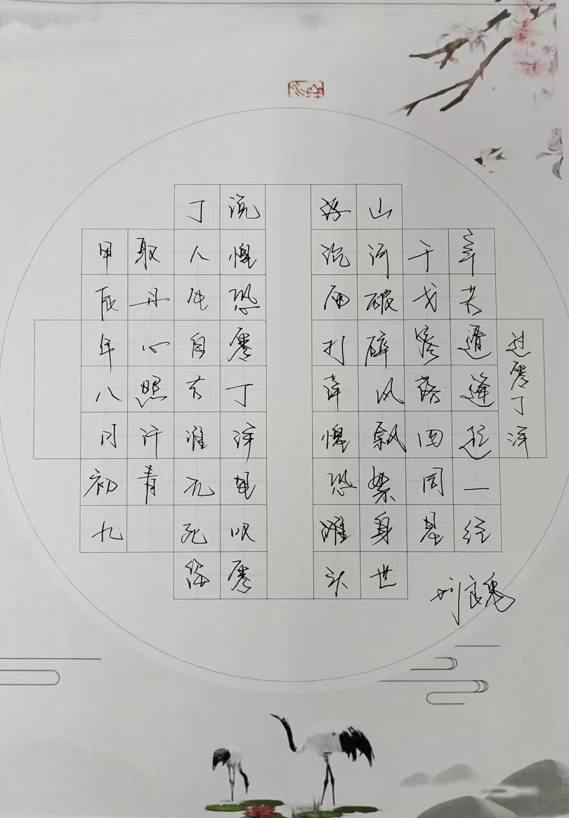 过零丁洋
辛苦遭逢起一经
干戈寥落四周星
山河破碎风飘絮身世
浮沉雨打萍惶恐滩头
说惶恐零丁洋里叹零
丁人生自古谁无死留
取丹心照汗青
甲辰年八月初九